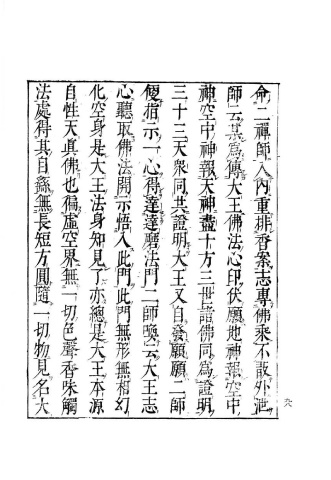 命二禪師入內重排香案志專佛乘不散外泄
師云某爲傳大王佛法心印伏願地神報空中
神空中神報天神盡十方三世諸佛同爲證明
三十三天衆同共證明大王又自發願願二師
便指示一心得達達磨法門二師喚云大王志
心聽取佛法開示悟入此門此門無形無相幻
化空身是大王法身知見了亦總是大王本源
自性天眞佛也徧虛空界無一切色聲香味觸
法處得其自繇無長短方圓隨一切物見名大
六